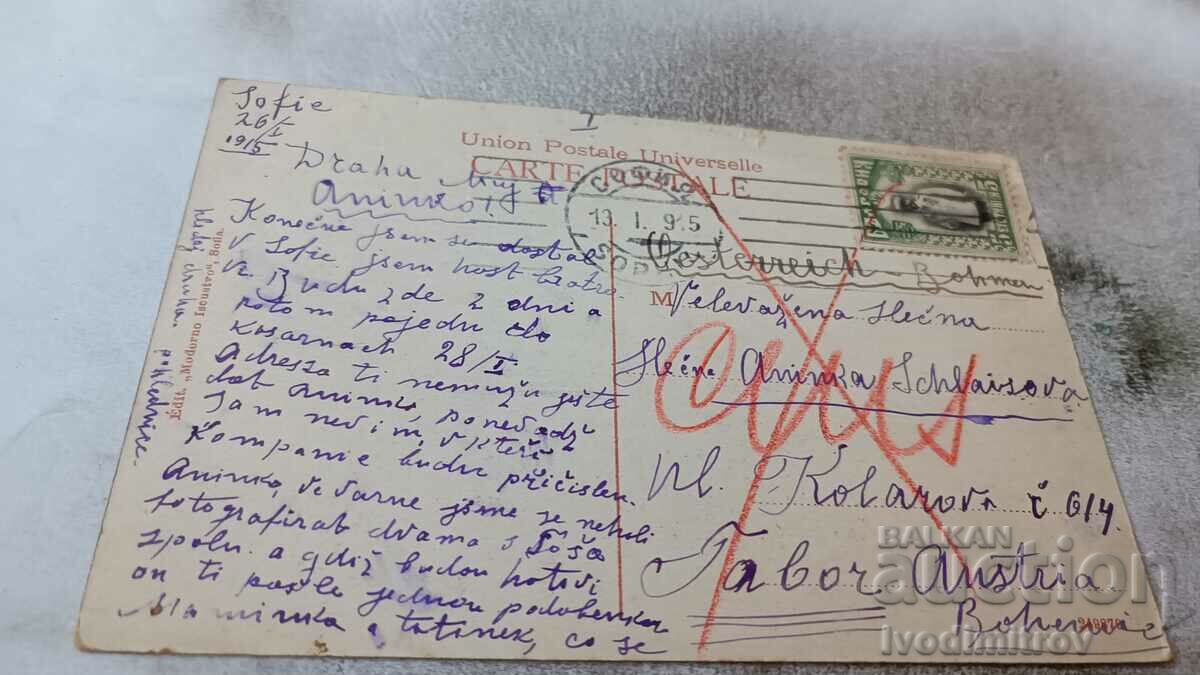 Sofie
26/I
1915
Union Postale Universelle
CARTE POSTALE
Draha Muj
Aninko!
Konečně jsem se dostal
v Sofie jsem host bratra
Vl. Budu zde 2 dni a
potom pojedu do
Kasarnach 28/I
Adresa ti nemužu ještě
dat Aninko, poněvadž
sam nevim, v kteři
Kompanie budu přičislen.
Aninko, ve Varne jsme se nehali
fotografirat dvama s
spolu a gdiž budou hotivi
on ti pošle jednou podobenku
Maminka a tatinek, co se
hledej
pohlednice.
Édit. „Moderno Iscustvo", Sofia.
19. I. 915
Oesterreich
Bohmen
M
Velevažena slečna
Slečna Aninka Schlaisova
Ul. Kolarova č 614.
Tabor Austria
Bohemie
BALKAN
auction
ivodimitrov